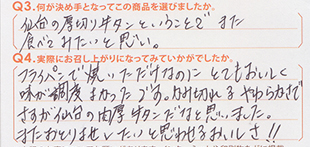 Q3.何が決め手となってこの商品を選びましたか。
仙台の厚切り牛タンということで また
食べてみたいと思い。
Q4.実際にお召し上がりになってみていかがでしたか。
フライパンで焼いただけなのに とてもおいしく
味が調度よかったです。かみ切れる やわらかさで
さすが仙台の肉厚牛タンだなと思いました。
またおとりよせしたいと思わせるおいしさ!!